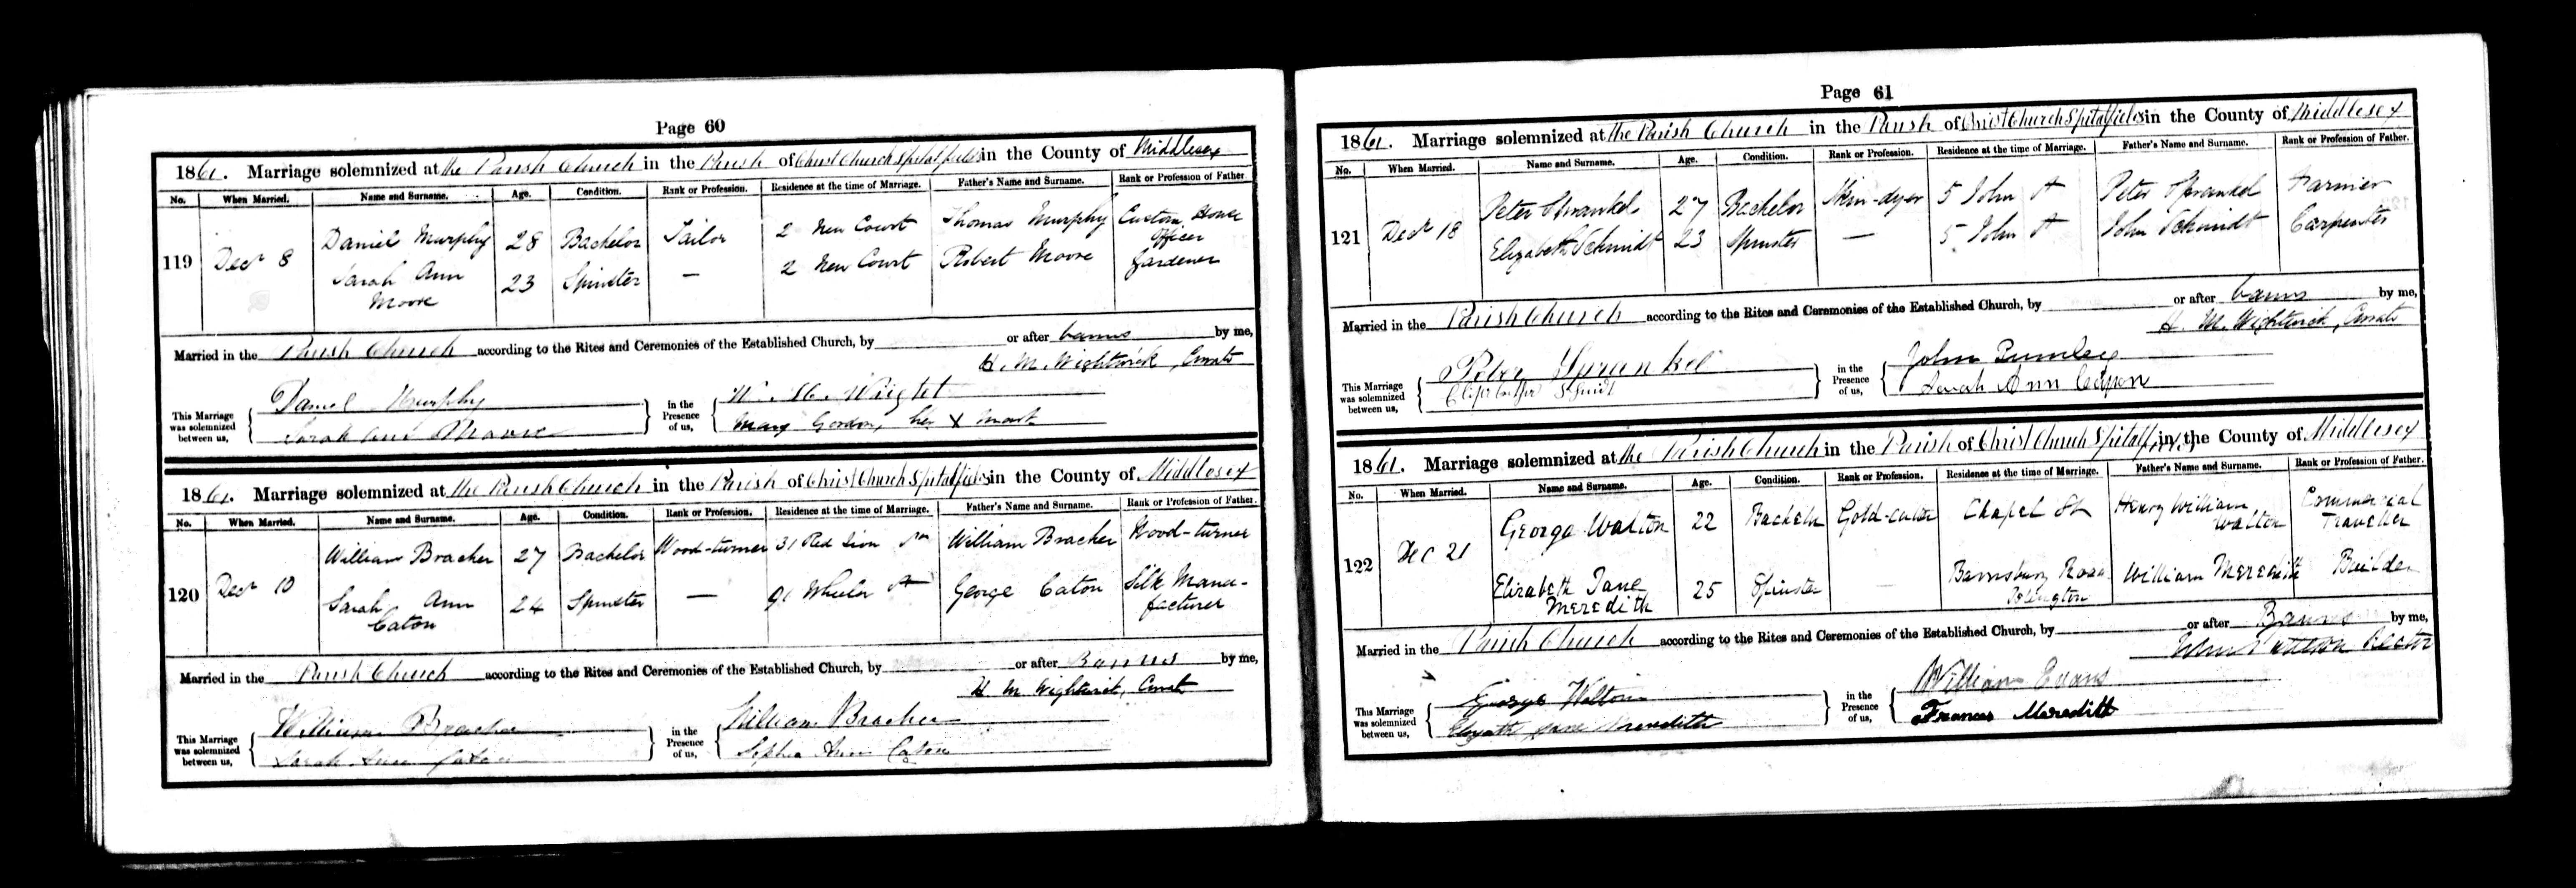 Page 60
1861. Marriage solemnized at the Parish Church in the Parish of Christ Church Spitalfields in the County of Middlesex
No. When Married. Name and Surname. Age. Condition. Rank or Profession. Residence at the time of Marriage. Father's Name and Surname. Rank or Profession of Father.
119 Decr 8 Daniel Murphy 28 Bachelor Tailor 2 New Court Thomas Murphy Custom House Officer
Sarah Ann Moore 23 Spinster — 2 New Court Robert Moore Gardener
Married in the Parish Church according to the Rites and Ceremonies of the Established Church, by or after banns by me,
H. M. Wightwick, Curate
This Marriage was solemnized between us, Daniel Murphy
Sarah Ann Moore
in the Presence of us, W. H. Wright
Mary Gordon, her X mark
1861. Marriage solemnized at the Parish Church in the Parish of Christ Church Spitalfields in the County of Middlesex
No. When Married. Name and Surname. Age. Condition. Rank or Profession. Residence at the time of Marriage. Father's Name and Surname. Rank or Profession of Father.
120 Decr 10 William Bracher 27 Bachelor Wood-turner 31 Red Lion William Bracher Wood-turner
Sarah Ann Caton 24 Spinster — 91 Wheeler St George Caton Silk Manufacturer
Married in the Parish Church according to the Rites and Ceremonies of the Established Church, by or after Banns by me,
H. M. Wightwick, Curate
This Marriage was solemnized between us, William Bracher
Sarah Ann Caton
in the Presence of us, William Bracher
Sophia Ann Caton
Page 61
1861. Marriage solemnized at the Parish Church in the Parish of Christ Church Spitalfields in the County of Middlesex
No. When Married. Name and Surname. Age. Condition. Rank or Profession. Residence at the time of Marriage. Father's Name and Surname. Rank or Profession of Father.
121 Decr 18 Peter Sprankel 27 Bachelor Skin-dyer 5 John St Peter Sprankel Farmer
Elizabeth Schmidt 23 Spinster — 5 John St John Schmidt Carpenter
Married in the Parish Church according to the Rites and Ceremonies of the Established Church, by or after banns by me,
H. M. Wightwick, Curate
This Marriage was solemnized between us, Peter Sprankel
in the Presence of us, John
Sarah Ann
1861. Marriage solemnized at the Parish Church in the Parish of Christ Church Spitalfields in the County of Middlesex
No. When Married. Name and Surname. Age. Condition. Rank or Profession. Residence at the time of Marriage. Father's Name and Surname. Rank or Profession of Father.
122 Dec 21 George Walton 22 Bachelor Gold-cutter Chapel St Henry William Walton Commercial Traveller
Elizabeth Jane Meredith 25 Spinster — Barnsbury Road Islington William Meredith Builder
Married in the Parish Church according to the Rites and Ceremonies of the Established Church, by or after Banns by me,
John Patteson Rector
This Marriage was solemnized between us, George Walton
Elizabeth Jane Meredith
in the Presence of us, William Evans
Frances Meredith